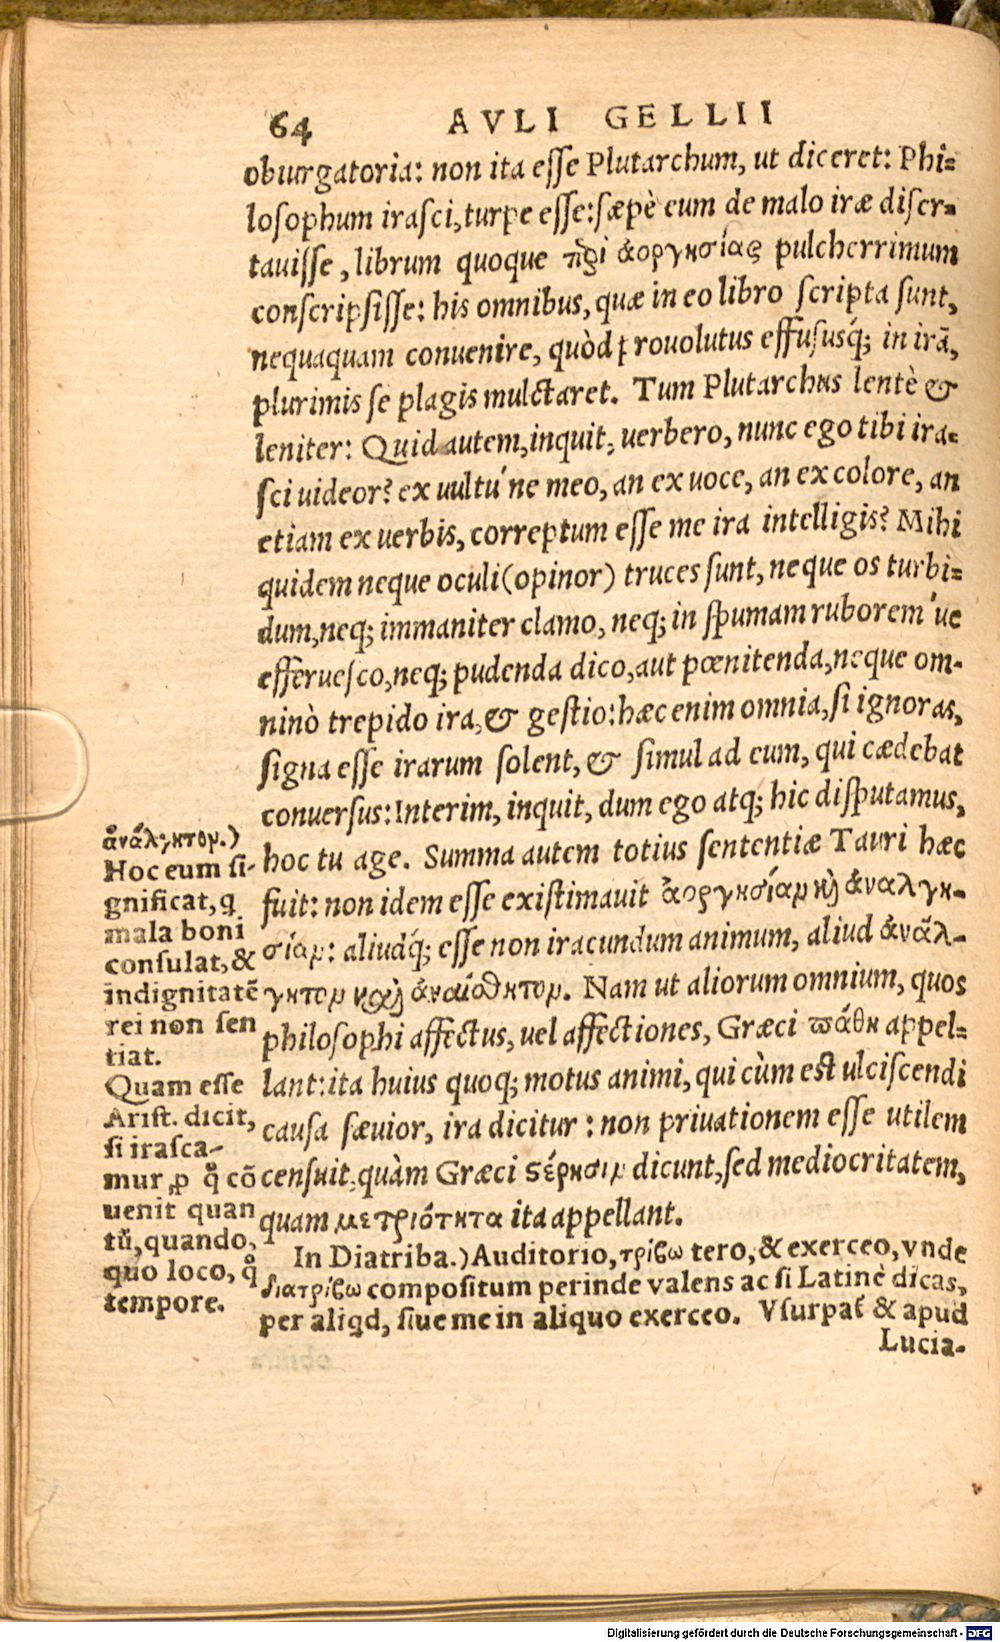 64 AVLI GELLII
obiurgatoria: non ita esse Plutarchum, ut diceret: Phi-
losophum irasci, turpe esse: sæpè eum de malo iræ disser-
tauisse, librum quoque πϖρὶ ἀοργησίας pulcherrimum
conscripsisse: his omnibus, quæ in eo libro scripta sunt,
nequaquam conuenire, quòd prouolutus effususq́; in irā,
plurimis se plagis mulctaret. Tum Plutarchus lentè &
leniter: Quid autem, inquit, uerbero, nunc ego tibi ira-
sci uideor? ex uultú ne meo, an ex uoce, an ex colore, an
etiam ex uerbis, correptum esse me ira intelligis? Mihi
quidem neque oculi (opinor) truces sunt, neque os turbi-
dum, neq; immaniter clamo, neq; in spumam ruborem'ue
efferuesco, neq; pudenda dico, aut pœnitenda, neque om-
ninò trepido ira, & gestio: hæc enim omnia, si ignoras,
signa esse irarum solent, & simul ad eum, qui cædebat
conuersus: Interim, inquit, dum ego atq; hic disputamus,
hoc tu age. Summa autem totius sententiæ Tauri hæc
fuit: non idem esse existimauit ἀοργησίαν κὴ ἀναλγη-
σίαν: aliudq́; esse non iracundum animum, aliud ἀνάλ-
γητον καὶ ἀναίσθητον. Nam ut aliorum omnium, quos
philosophi affectus, uel affectiones, Græci πάθη appel-
lant: ita huius quoq; motus animi, qui cùm est ulciscendi
causa sæuior, ira dicitur: non priuationem esse utilem
censuit, quàm Græci στέρησιν dicunt, sed mediocritatem,
quam μετριότητα ita appellant.
ἀνάλγητον.)
Hoc eum si-
gnificat, q
mala boni
consulat, &
indignitatē
rei non sen
tiat.
Quam esse
Arist. dicit,
si irasca-
mur, ꝓ ꝙ cō
uenit quan
tū, quando,
quo loco, ꝙ
tempore.
In Diatriba.) Auditorio, τρίβω tero, & exerceo, vnde
διατρίβω compositum perinde valens ac si Latinè dicas,
per aliqd, siue me in aliquo exerceo. Vsurpat́ & apud
Lucia-
Digitalisierung gefördert durch die Deutsche Forschungsgemeinschaft - DFG